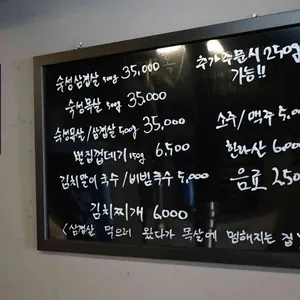 숙성삼겹살 500g 35,000
숙성목살 500g 35,000
숙성목살/삼겹살 500g 35,000
벌집껍데기 150g 6,500
김치말이국수/비빔국수 5,000
김치찌개 6,000
<삼겹살 먹으러 왔다가 목살에 멈해지는 집
추가주문시 250
가능!!
소주/맥주 5,0
한라산 6,00
음료 2,50